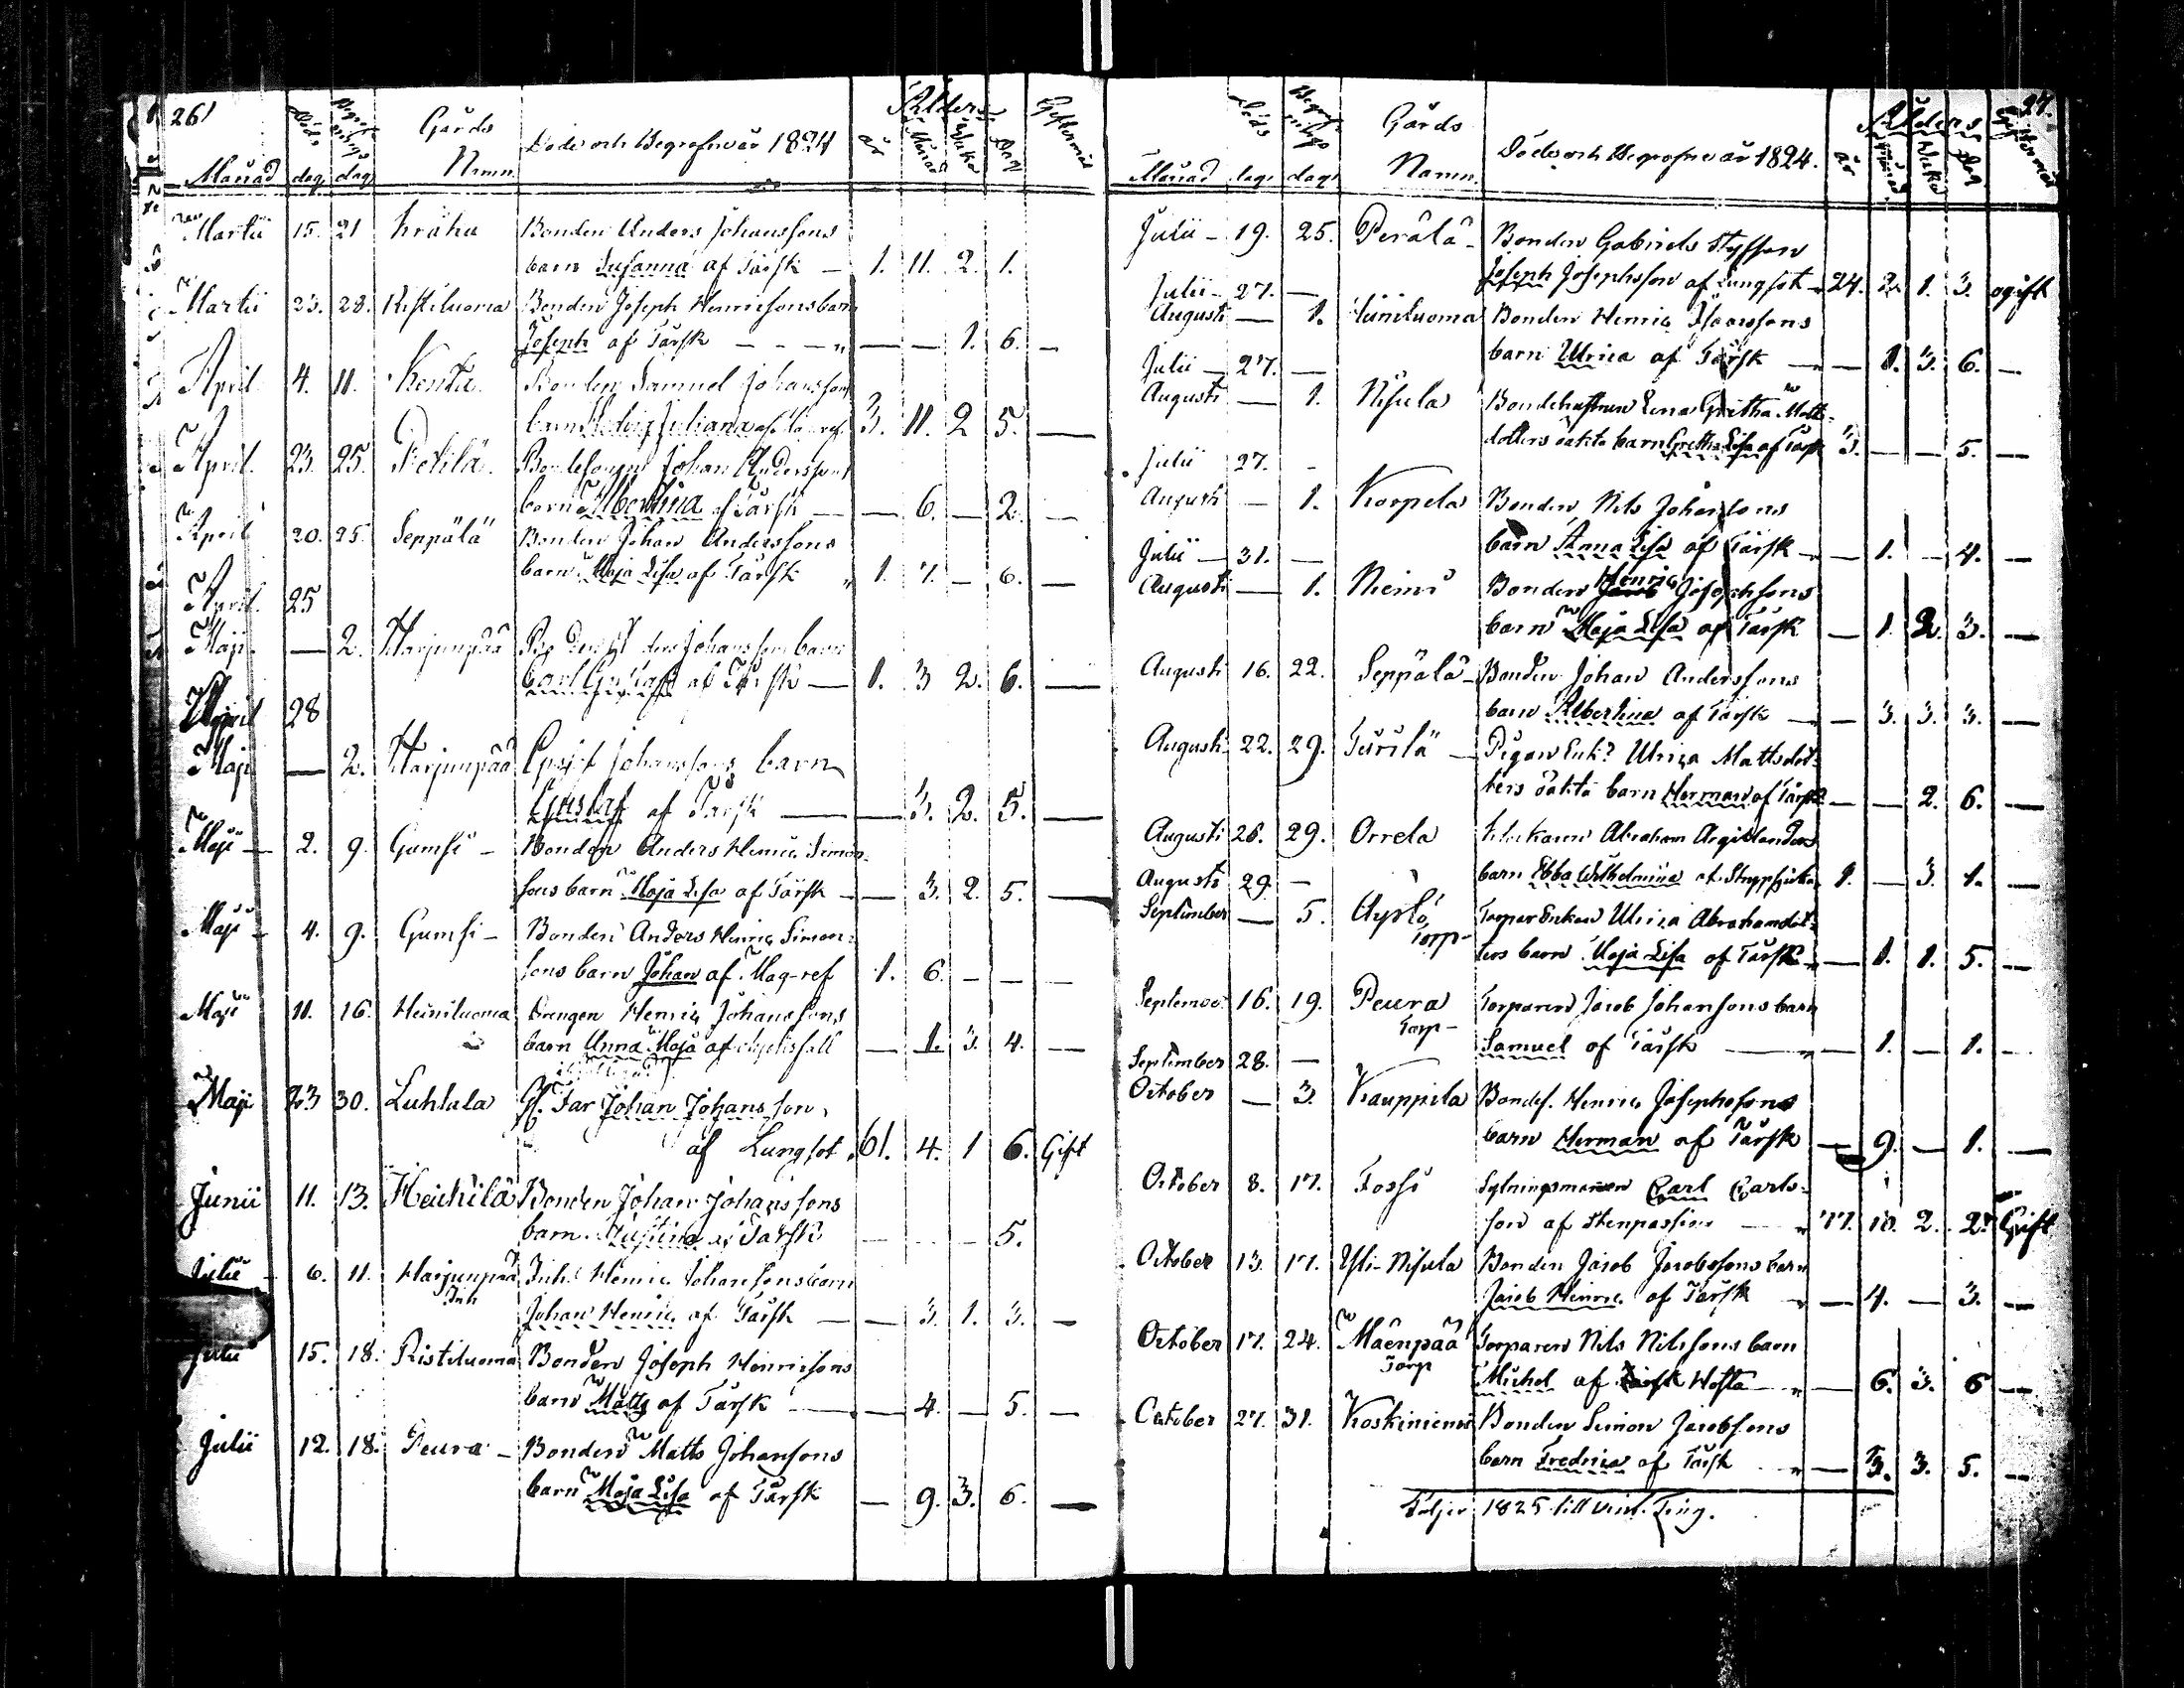 26
Månad Döds dag Begrafnings dag Gårds Namn. Döde och Begrafne år 1824 Ålder år Månad Weka Dag Giftermål
Martii 15. 21 Kråhu Bonden Anders Johanssons
barn Susanna af Tärsk — 1. 11. 2. 1.
Martii 23. 28. Ristiluoma Bonden Joseph Henricsons barn
Joseph af Tärsk — — 1. 6. —
April 4. 11. Kentta Bonden Samuel Johanssons
barn Juliana af 3. 11. 2 5. —
April 23. 25. Pietilä. Bondesonens Johan Anderssons
barn Albertina af Tärsk — — 6. — 2. —
April 20. 25. Seppälä Bonden Johan Anderssons
barn Maja Lisa af Tärsk 1. 7. — 6. —
April 25
Maji — 2. Harjunpää Johanssons barn
Carl Gustaf af Tärsk — 1. 3 2. 6. —
April 28
Maji — 2. Harjunpää Johanssons barn
Gustaf af Tärsk — — 3. 2. 5. —
Maji — 2. 9. Gumsi — Bonden Anders Henric Simon-
sons barn Maja Lisa af Tärsk — — 3. 2. 5. —
Maji — 4. 9. Gumsi — Bonden Anders Henric Simon-
sons barn Johan af Mag-ref 1. 6. — — —
Maji 11. 16. Heiniluoma Drengen Henric Johanssons
barn Anna Maja af — 1. 3. 4. —
Maji 23 30. Luhtala Johan Johansson
af Lungsot 61. 4. 1 6. Gift
Junii 11. 13. Heickilä Bonden Johan Johanssons
barn Justina af Tärsk — — — 5.
Julii — 6. 11. Harjunpää Inh. Henric Johanssons barn
Inh
Johan Henric af Tärsk — — 3. 1. 3. —
Julii 15. 18. Ristiluoma Bonden Joseph Henricsons
barn Matts af Tärsk — — 4. — 5. —
Julii 12. 18. Peura — Bonden Matts Johansons
barn Maja Lisa af Tärsk — 9. 3. 6. —
27.
Månad Döds dag Begrafnings dag Gårds Namn. Döde och Begrafne år 1824. Ålders år Månad Weka Dag Giftermål
Julii — 19. 25. Perälä — Bonden Gabriels Styfson
Joseph Josephsson af Lungsot — 24. 2. 1. 3. ogift
Julii — 27. —
Augusti — 1. Heiniluoma Bonden Henric Isacssons
barn Ulrica af Tärsk — — 1. 3. 6. —
Julii — 27. —
Augusti — 1. Nisula Bondehustrun Lena Gretha Matts-
dotters oäkta barn Gretha Lisa af Tärsk 3. — — 5. —
Julii 27. —
Augusti — 1. Korpela Bonden Nils Johanssons
barn Anna Lisa af Tärsk — — 1. — 4. —
Julii — 31. —
Augusti — 1. Niemi Bonden Henric Josephsons
barn Maja Lisa af Tärsk — 1. 2. 3. —
Augusti 16. 22. Seppälä — Bonden Johan Anderssons
barn Albertina af Tärsk — — 3. 3. 3. —
Augusti 22. 29. Turilä — Pigan Enk? Ulrica Mattsdot-
ters oäkta barn Herman af Tärsk — — 2. 6. —
Augusti 26. 29. Orrela Klockaren Abraham Argillanders
barn Ebba Wilhelmina af Strypsjuka 1. — 3. 1. —
Augusti 29. —
September — 5. Torp — Torpar Enkan Ulrica Abrahamsdot-
ters barn Maja Lisa af Tärsk — — 1. 1. 5. —
September 16. 19. Peura Torparen Jacob Johansons barn
Torp —
Samuel af Tärsk — — 1. — 1. —
September 28. —
October — 3. Kauppila Bondes. Henric Josephssons
barn Herman af Tärsk — 9. — 1. —
October 8. 17. Fossi Sytningsmannen Carl Carls-
son af Stenpassion — 77. 10. 2. 2. Gift
October 13. 17. Yli-Nisula Bonden Jacob Jacobssons barn
Jacob Henric af Tärsk — 4. — 3. —
October 17. 24. Mäenpää Torparen Nils Nilssons barn
Torp
Michel af Hosta — — 6. 3. 6 —
October 27. 31. Koskiniemi Bonden Simon Jacobsons
barn Fredrica af Tärsk — 3. 3. 5. —
Följer 1825 till vint. Ting.